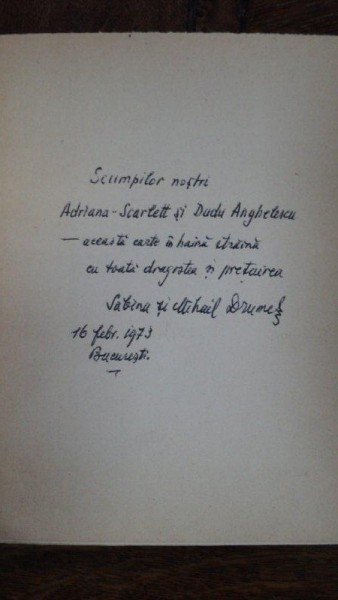 Scumpilor noștri
Adriana-Scarlett și Dudu Anghelescu
— această carte în haină străină
cu toată dragostea și prețuirea
Sabina și Mihail Drumeș
16 febr. 1973
București.